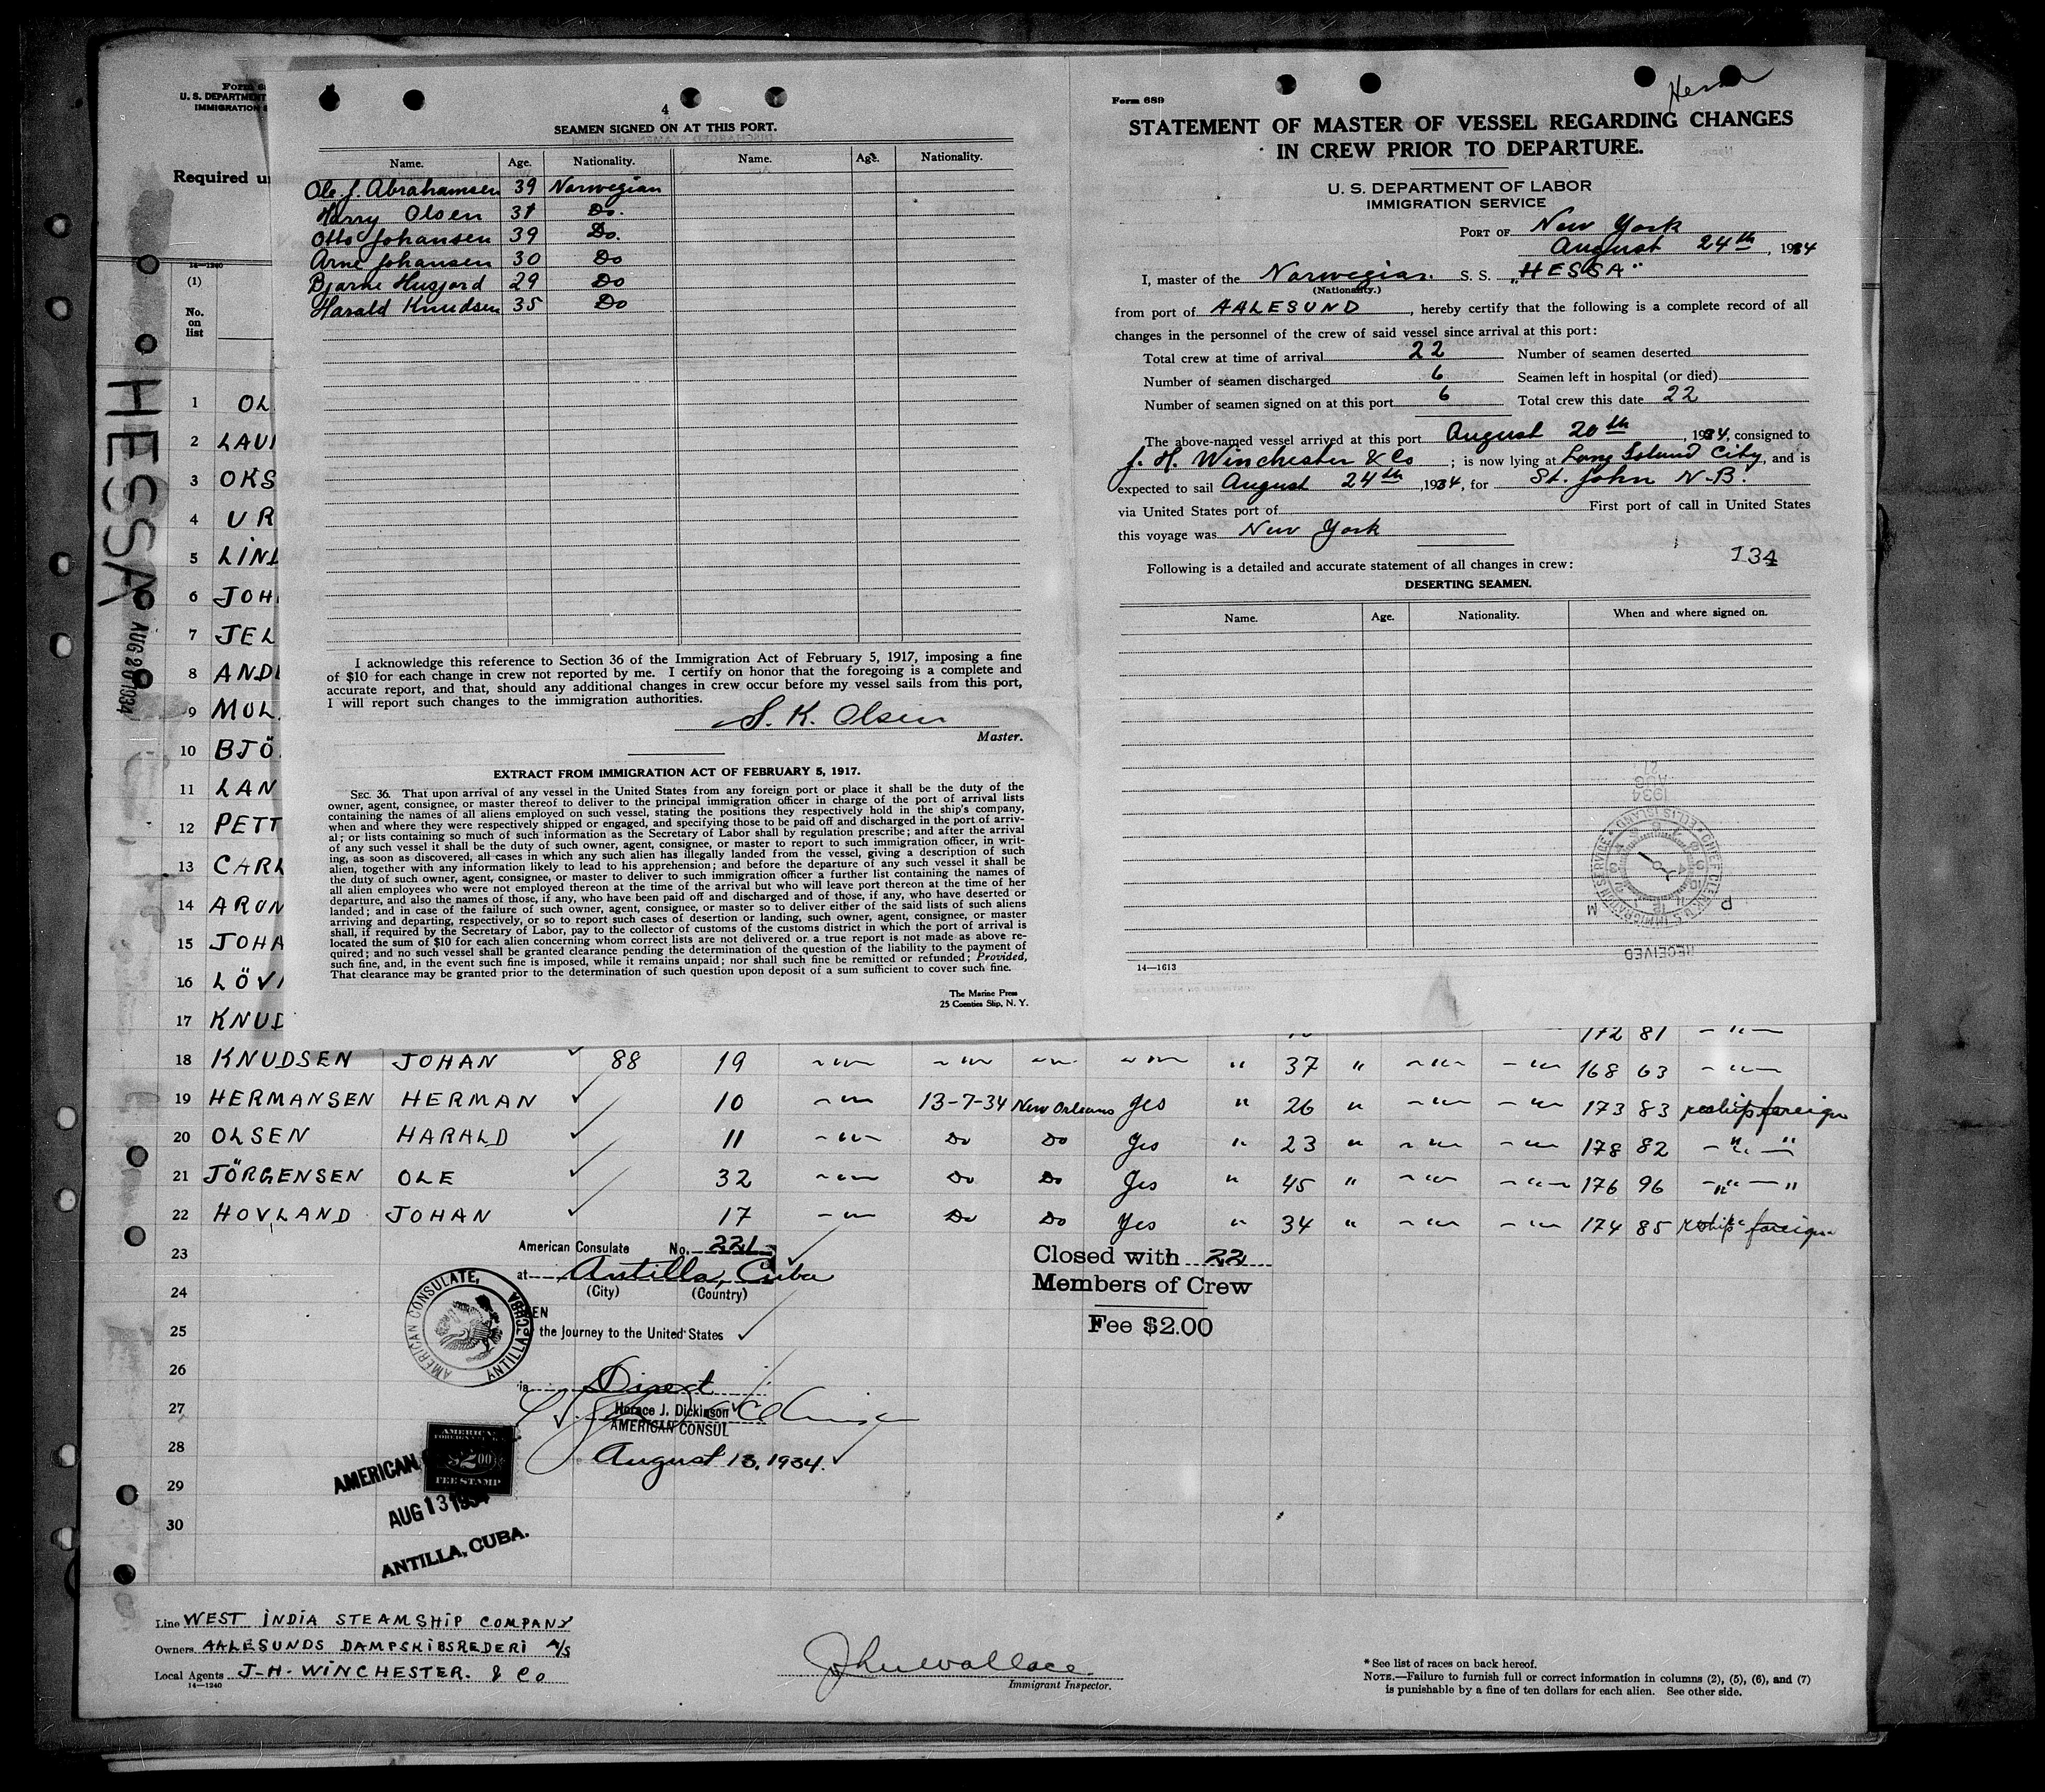 Form 6
U. S. DEPARTMENT
IMMIGRATION
Required u
14—1240
(1)
No.
on
list
HESSA
AUG 20 1934
1 OL
2 LAUI
3 OKS
4 UR
5 LIND
6 JOH
7 JEL
8 AND
9 MOL
10 BJÖ
11 LAN
12 PETT
13 CARL
14 ARON
15 JOHA
16 LÖVI
17 KNUD
4
SEAMEN SIGNED ON AT THIS PORT.
Name. Age. Nationality. Name. Age. Nationality.
Ole J. Abrahamsen 39 Norwegian
Harry Olsen 31 Do.
Otto Johansen 39 Do.
Arne Johansen 30 Do
Bjarne Husjord 29 Do
Harald Knudsen 35 Do
I acknowledge this reference to Section 36 of the Immigration Act of February 5, 1917, imposing a fine
of $10 for each change in crew not reported by me. I certify on honor that the foregoing is a complete and
accurate report, and that, should any additional changes in crew occur before my vessel sails from this port,
I will report such changes to the immigration authorities.
S. K. Olsen
Master.
EXTRACT FROM IMMIGRATION ACT OF FEBRUARY 5, 1917.
SEC. 36. That upon arrival of any vessel in the United States from any foreign port or place it shall be the duty of the
owner, agent, consignee, or master thereof to deliver to the principal immigration officer in charge of the port of arrival lists
containing the names of all aliens employed on such vessel, stating the positions they respectively hold in the ship's company,
when and where they were respectively shipped or engaged, and specifying those to be paid off and discharged in the port of arriv-
al; or lists containing so much of such information as the Secretary of Labor shall by regulation prescribe; and after the arrival
of any such vessel it shall be the duty of such owner, agent, consignee, or master to report to such immigration officer, in writ-
ing, as soon as discovered, all cases in which any such alien has illegally landed from the vessel, giving a description of such
alien, together with any information likely to lead to his apprehension; and before the departure of any such vessel it shall be
the duty of such owner, agent, consignee, or master to deliver to such immigration officer a further list containing the names of
all alien employees who were not employed thereon at the time of the arrival but who will leave port thereon at the time of her
departure, and also the names of those, if any, who have been paid off and discharged and of those, if any, who have deserted or
landed; and in case of the failure of such owner, agent, consignee, or master so to deliver either of the said lists of such aliens
arriving and departing, respectively, or so to report such cases of desertion or landing, such owner, agent, consignee, or master
shall, if required by the Secretary of Labor, pay to the collector of customs of the customs district in which the port of arrival is
located the sum of $10 for each alien concerning whom correct lists are not delivered or a true report is not made as above re-
quired; and no such vessel shall be granted clearance pending the determination of the question of the liability to the payment of
such fine, and, in the event such fine is imposed, while it remains unpaid; nor shall such fine be remitted or refunded; Provided,
That clearance may be granted prior to the determination of such question upon deposit of a sum sufficient to cover such fine.
The Marine Press
25 Coenties Slip, N. Y.
Hessa
Form 689
STATEMENT OF MASTER OF VESSEL REGARDING CHANGES
IN CREW PRIOR TO DEPARTURE.
U. S. DEPARTMENT OF LABOR
IMMIGRATION SERVICE
PORT OF New York
August 24th, 1934
I, master of the Norwegian S. S. "HESSA"
(Nationality.)
from port of AALESUND, hereby certify that the following is a complete record of all
changes in the personnel of the crew of said vessel since arrival at this port:
Total crew at time of arrival 22 Number of seamen deserted
Number of seamen discharged 6 Seamen left in hospital (or died)
Number of seamen signed on at this port 6 Total crew this date 22
The above-named vessel arrived at this port August 20th, 1934, consigned to
J. H. Winchester & Co; is now lying at Long Island City, and is
expected to sail August 24th, 1934, for St. John N-B.
via United States port of First port of call in United States
this voyage was New York
134
Following is a detailed and accurate statement of all changes in crew:
DESERTING SEAMEN.
Name. Age. Nationality. When and where signed on.
AUG 27 1934
CHIEF CLERK U S IMMIGRATION SERVICE ELLIS ISLAND
P M
RECEIVED
14—1613
172 81 - " -
18 KNUDSEN JOHAN 88 19 - " - - " - - " - - " - " 37 " - " - - " - 168 63 - " -
19 HERMANSEN HERMAN 10 - " - 13-7-34 New Orleans Yes " 26 " - " - - " - 173 83 reship foreign
20 OLSEN HARALD 11 - " - Do Do Yes " 23 " - " - - " - 178 82 - " - "
21 JÖRGENSEN OLE 32 - " - Do Do Yes " 45 " - " - - " - 176 96 - " - "
22 HOVLAND JOHAN 17 - " - Do Do Yes " 34 " - " - - " - 174 85 reship foreign
23
24
25
26
27
28
29
30
American Consulate No. 221
at Antilla, Cuba
(City) (Country)
EN
the Journey to the United States
ia Direct
Horace J. Dickinson
AMERICAN CONSUL
August 13, 1934.
AMERICAN CONSULATE, ANTILLA, CUBA
AMERICAN
FOREIGN
$2.00
FEE STAMP
AMERICAN
AUG 13 1934
ANTILLA, CUBA.
Closed with 22
Members of Crew
Fee $2.00
Line WEST INDIA STEAMSHIP COMPANY
Owners AALESUNDS DAMPSKIBSREDERI A/S
Local Agents J-H- WINCHESTER. & Co
14—1240
Jhuwallace
Immigrant Inspector.
* See list of races on back hereof.
NOTE.—Failure to furnish full or correct information in columns (2), (5), (6), and (7)
is punishable by a fine of ten dollars for each alien. See other side.